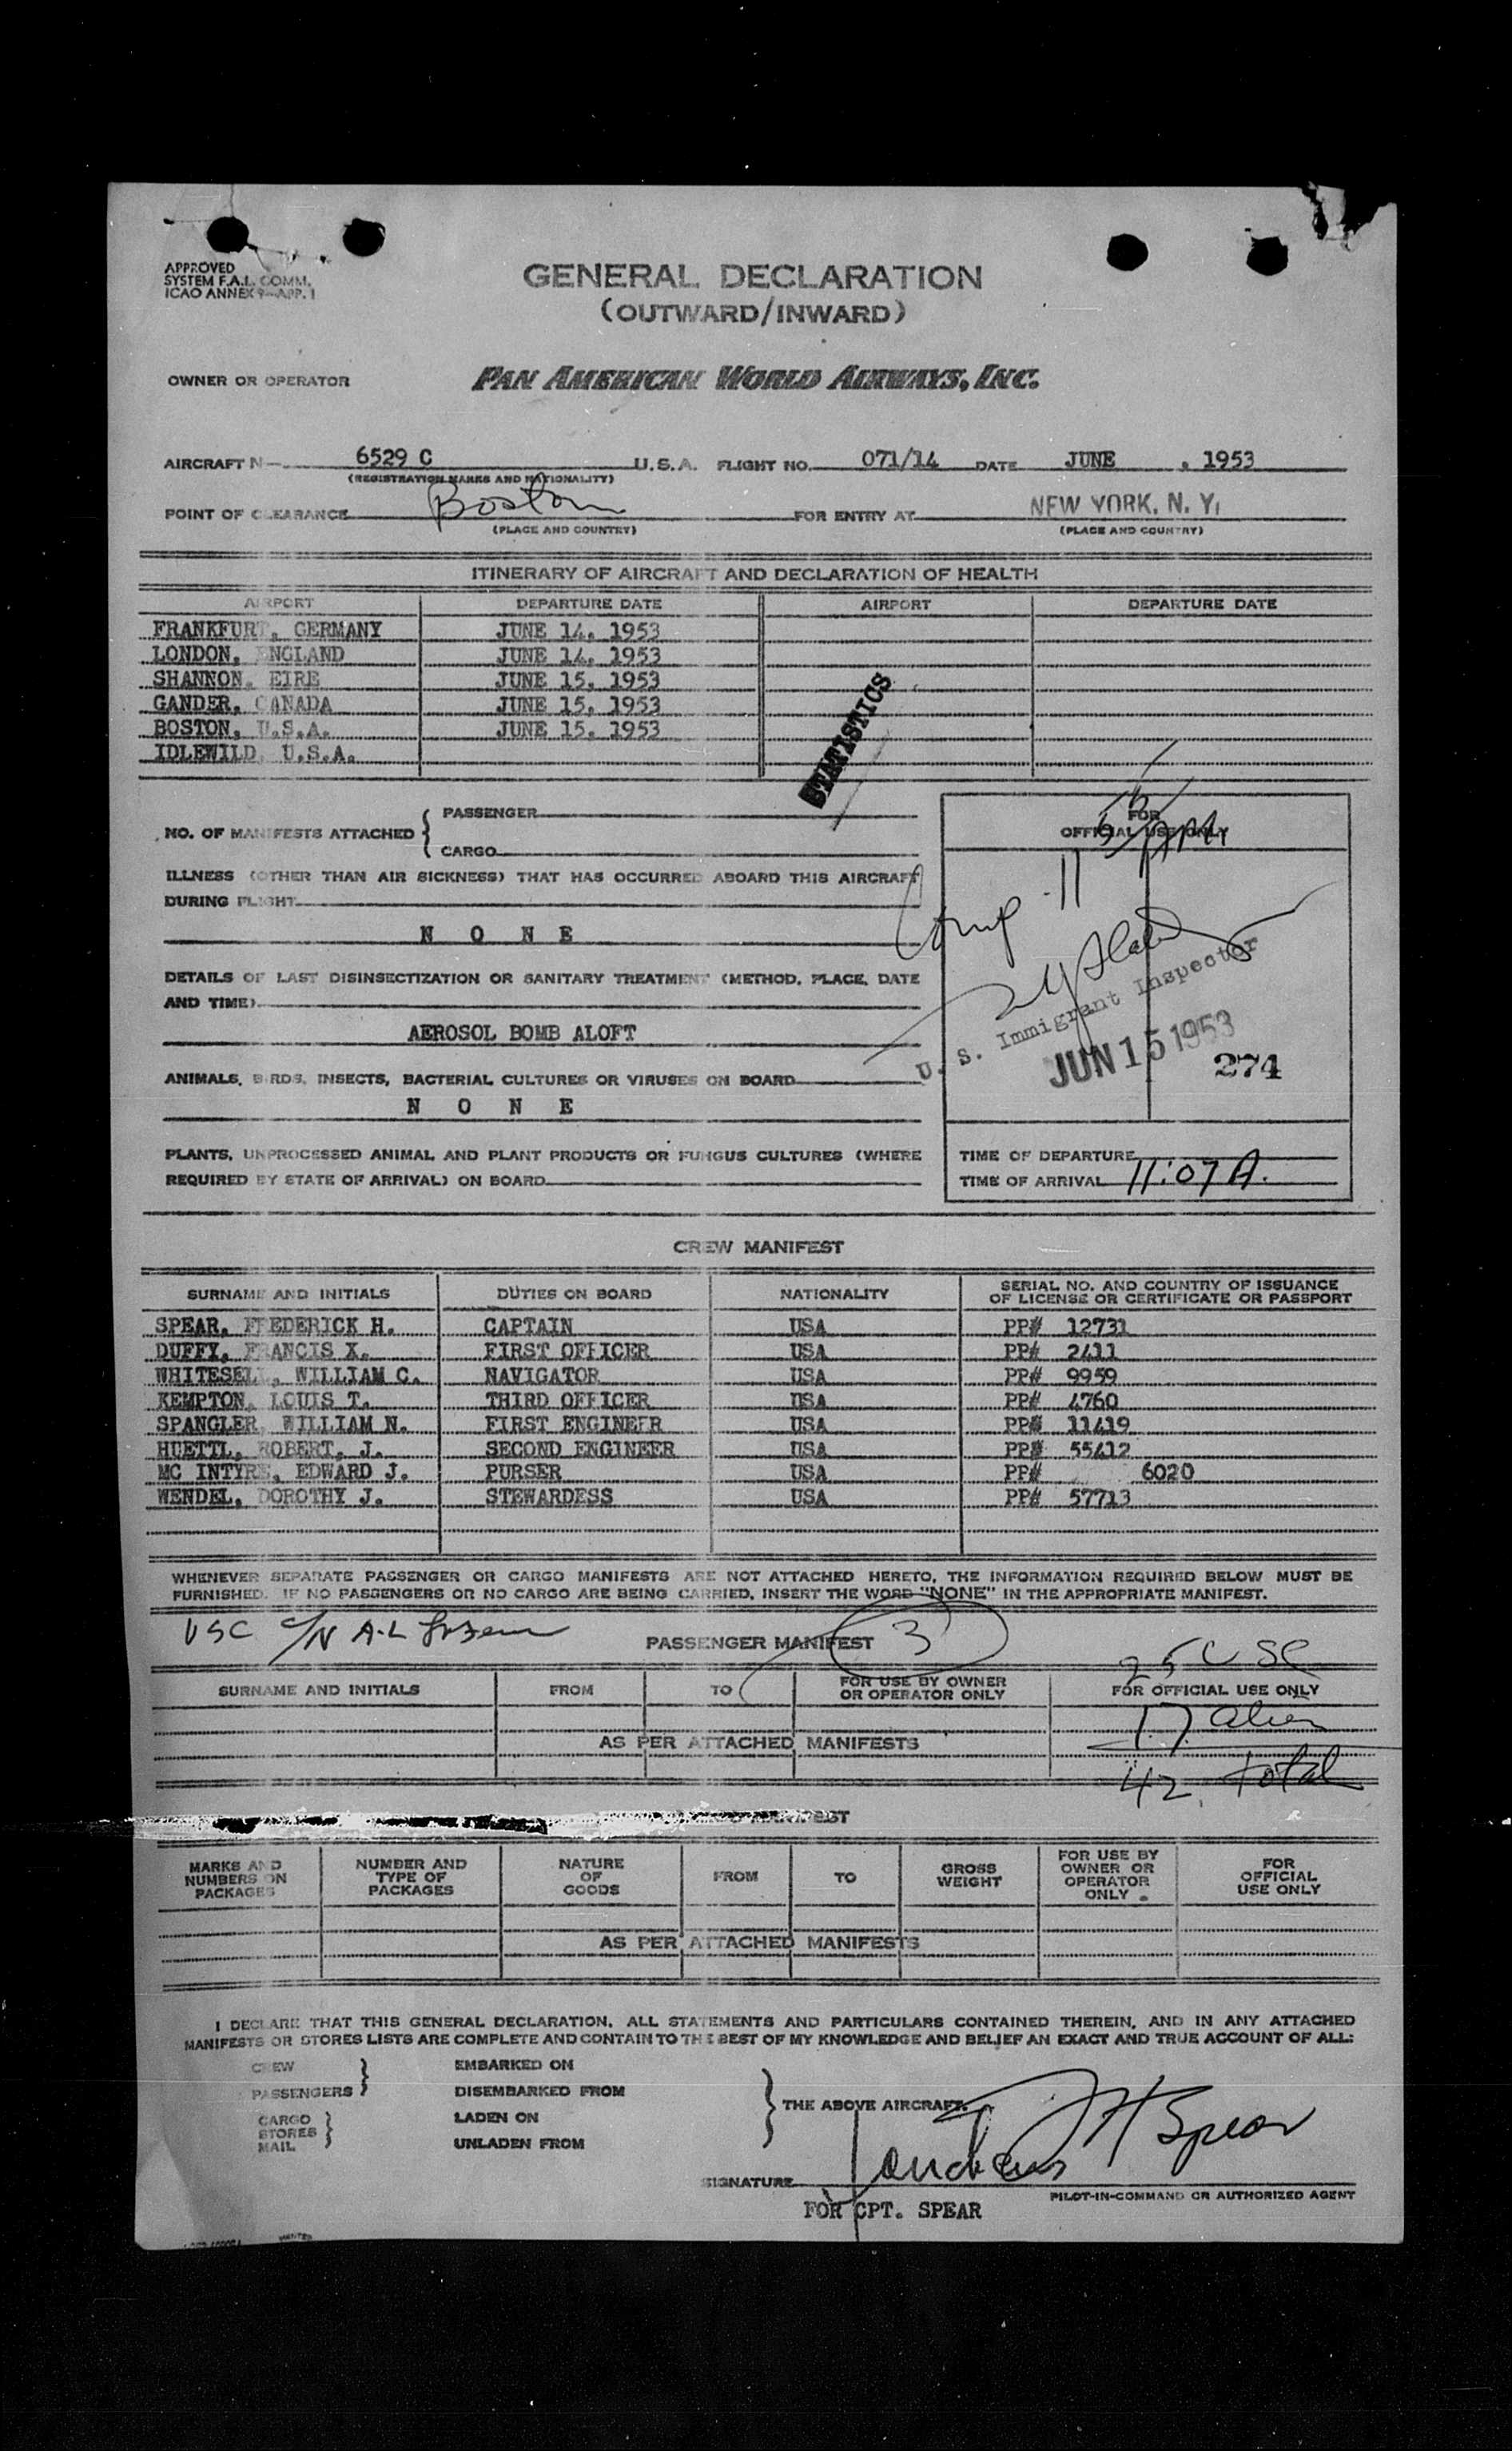 APPROVED
SYSTEM F.A.L. COMM.
ICAO ANNEX 9—APP. 1
GENERAL DECLARATION
(OUTWARD/INWARD)
OWNER OR OPERATOR PAN AMERICAN WORLD AIRWAYS, INC.
AIRCRAFT N— 6529 C U.S.A. FLIGHT NO. 071/14 DATE JUNE , 1953
(REGISTRATION MARKS AND NATIONALITY)
POINT OF CLEARANCE Boston FOR ENTRY AT NEW YORK, N. Y.
(PLACE AND COUNTRY) (PLACE AND COUNTRY)
ITINERARY OF AIRCRAFT AND DECLARATION OF HEALTH
AIRPORT DEPARTURE DATE AIRPORT DEPARTURE DATE
FRANKFURT, GERMANY JUNE 14, 1953
LONDON, ENGLAND JUNE 14, 1953
SHANNON, EIRE JUNE 15, 1953
GANDER, CANADA JUNE 15, 1953
BOSTON, U.S.A. JUNE 15, 1953
IDLEWILD, U.S.A.
STATISTICS
NO. OF MANIFESTS ATTACHED { PASSENGER
CARGO
FOR
OFFICIAL USE ONLY
ILLNESS (OTHER THAN AIR SICKNESS) THAT HAS OCCURRED ABOARD THIS AIRCRAFT
DURING FLIGHT
N O N E
Comp. 11
DETAILS OF LAST DISINSECTIZATION OR SANITARY TREATMENT (METHOD, PLACE, DATE
AND TIME)
AEROSOL BOMB ALOFT
U. S. Immigrant Inspector
JUN 15 1953
274
ANIMALS, BIRDS, INSECTS, BACTERIAL CULTURES OR VIRUSES ON BOARD
N O N E
PLANTS, UNPROCESSED ANIMAL AND PLANT PRODUCTS OR FUNGUS CULTURES (WHERE
REQUIRED BY STATE OF ARRIVAL) ON BOARD
TIME OF DEPARTURE
TIME OF ARRIVAL 11:07 A.
CREW MANIFEST
SURNAME AND INITIALS DUTIES ON BOARD NATIONALITY SERIAL NO. AND COUNTRY OF ISSUANCE
OF LICENSE OR CERTIFICATE OR PASSPORT
SPEAR, FREDERICK H. CAPTAIN USA PP# 12731
DUFFY, FRANCIS X. FIRST OFFICER USA PP# 2411
WHITESELL, WILLIAM C. NAVIGATOR USA PP# 9959
KEMPTON, LOUIS T. THIRD OFFICER USA PP# 4760
SPANGLER, WILLIAM N. FIRST ENGINEER USA PP# 11419
HUETTL, ROBERT, J. SECOND ENGINEER USA PP# 55412
MC INTYRE, EDWARD J. PURSER USA PP# 6020
WENDEL, DOROTHY J. STEWARDESS USA PP# 57713
WHENEVER SEPARATE PASSENGER OR CARGO MANIFESTS ARE NOT ATTACHED HERETO, THE INFORMATION REQUIRED BELOW MUST BE
FURNISHED. IF NO PASSENGERS OR NO CARGO ARE BEING CARRIED, INSERT THE WORD "NONE" IN THE APPROPRIATE MANIFEST.
USC
PASSENGER MANIFEST 3
25 USC
SURNAME AND INITIALS FROM TO FOR USE BY OWNER
OR OPERATOR ONLY FOR OFFICIAL USE ONLY
17 alien
AS PER ATTACHED MANIFESTS
42 total
MANIFEST
MARKS AND
NUMBERS ON
PACKAGES
NUMBER AND
TYPE OF
PACKAGES
NATURE
OF
GOODS
FROM
TO
GROSS
WEIGHT
FOR USE BY
OWNER OR
OPERATOR
ONLY
FOR
OFFICIAL
USE ONLY
AS PER ATTACHED MANIFESTS
I DECLARE THAT THIS GENERAL DECLARATION, ALL STATEMENTS AND PARTICULARS CONTAINED THEREIN, AND IN ANY ATTACHED
MANIFESTS OR STORES LISTS ARE COMPLETE AND CONTAIN TO THE BEST OF MY KNOWLEDGE AND BELIEF AN EXACT AND TRUE ACCOUNT OF ALL:
CREW
PASSENGERS }
EMBARKED ON
DISEMBARKED FROM
CARGO
STORES }
MAIL
LADEN ON
UNLADEN FROM
} THE ABOVE AIRCRAFT.
F H Spear
SIGNATURE
PILOT-IN-COMMAND OR AUTHORIZED AGENT
FOR CPT. SPEAR